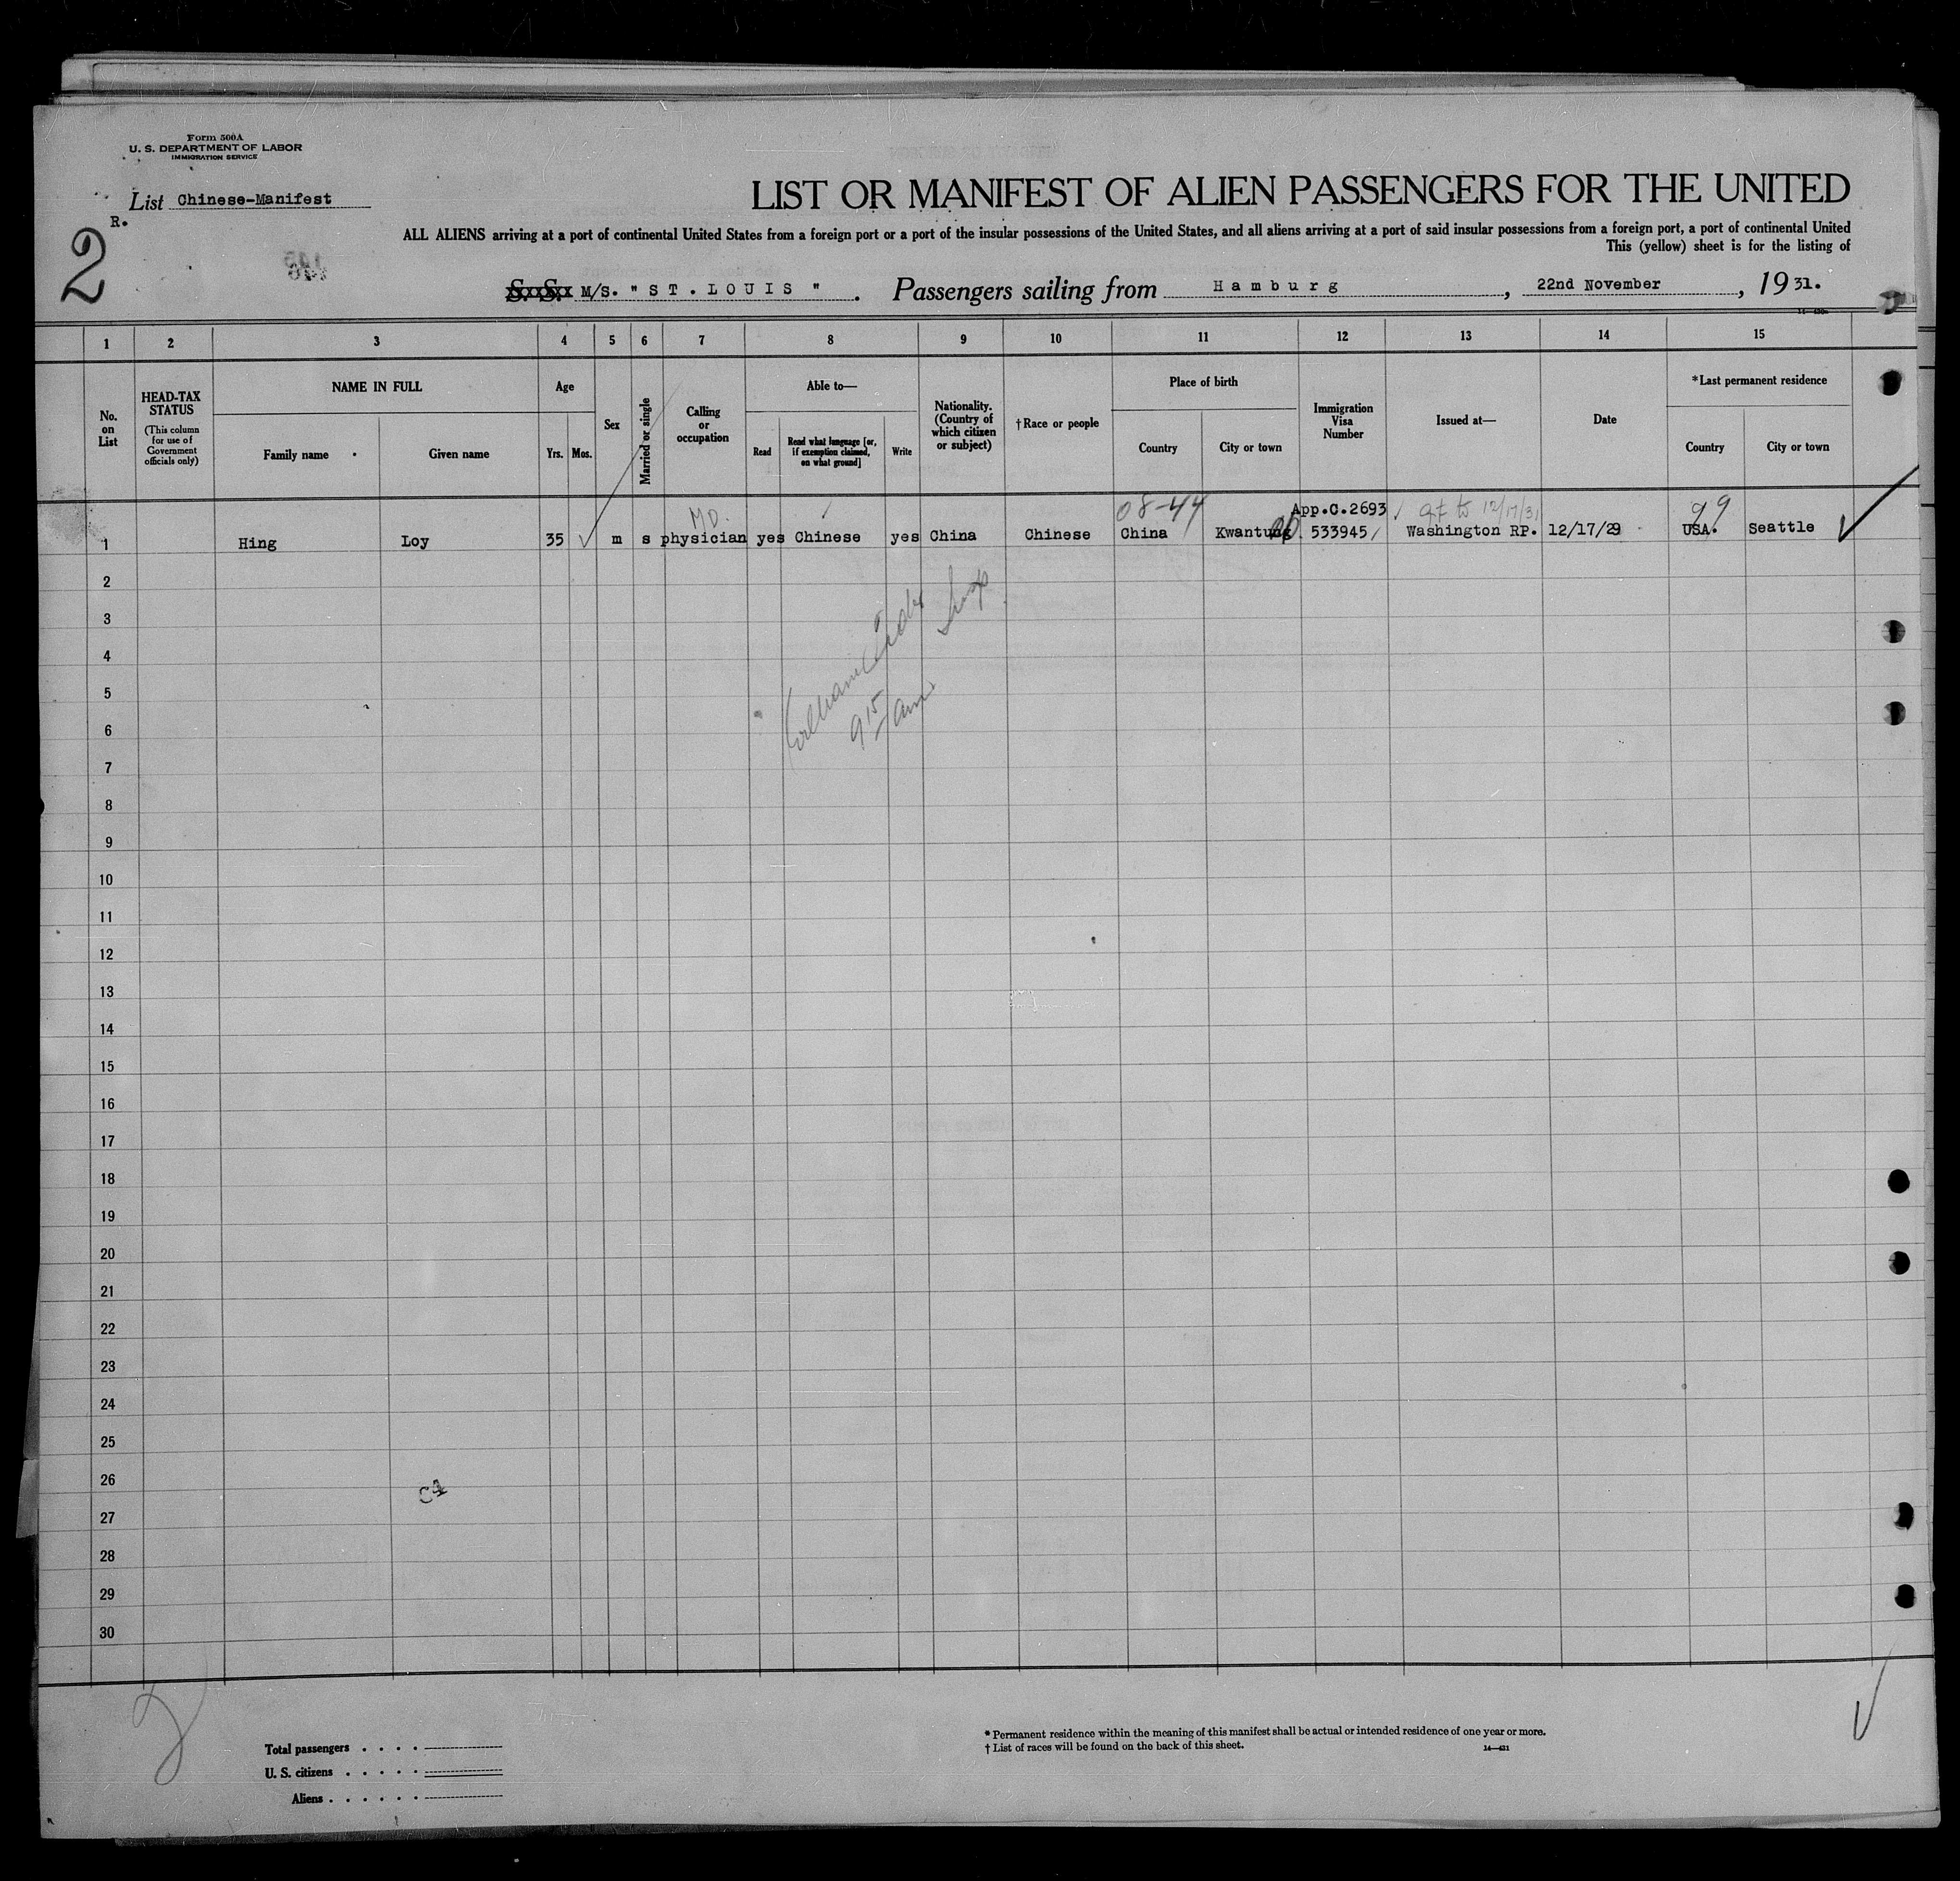 Form 500A
U. S. DEPARTMENT OF LABOR
IMMIGRATION SERVICE
List Chinese-Manifest
R.
2
LIST OR MANIFEST OF ALIEN PASSENGERS FOR THE UNITED
ALL ALIENS arriving at a port of continental United States from a foreign port or a port of the insular possessions of the United States, and all aliens arriving at a port of said insular possessions from a foreign port, a port of continental United
This (yellow) sheet is for the listing of
S. S. M/S. "ST. LOUIS". Passengers sailing from Hamburg, 22nd November, 1931.
1 2 3 4 5 6 7 8 9 10 11 12 13 14 15
No. on List
HEAD-TAX STATUS
(This column for use of Government officials only)
NAME IN FULL
Family name
Given name
Age
Yrs. Mos.
Sex
Married or single
Calling or occupation
Able to—
Read
Read what language [or, if exemption claimed, on what ground]
Write
Nationality. (Country of which citizen or subject)
†Race or people
Place of birth
Country
City or town
Immigration Visa Number
Issued at—
Date
*Last permanent residence
Country
City or town
MD. 08-44 App.C.2693 12/17/31 99
1 Hing Loy 35 m s physician yes Chinese yes China Chinese China Kwantung 533945 Washington RP. 12/17/29 USA. Seattle
2
3
4
5
6
7
8
9
10
11
12
13
14
15
16
17
18
19
20
21
22
23
24
25
26
27
28
29
30
9 15 am
2
Total passengers
U. S. citizens
Aliens
* Permanent residence within the meaning of this manifest shall be actual or intended residence of one year or more.
† List of races will be found on the back of this sheet.
14—431